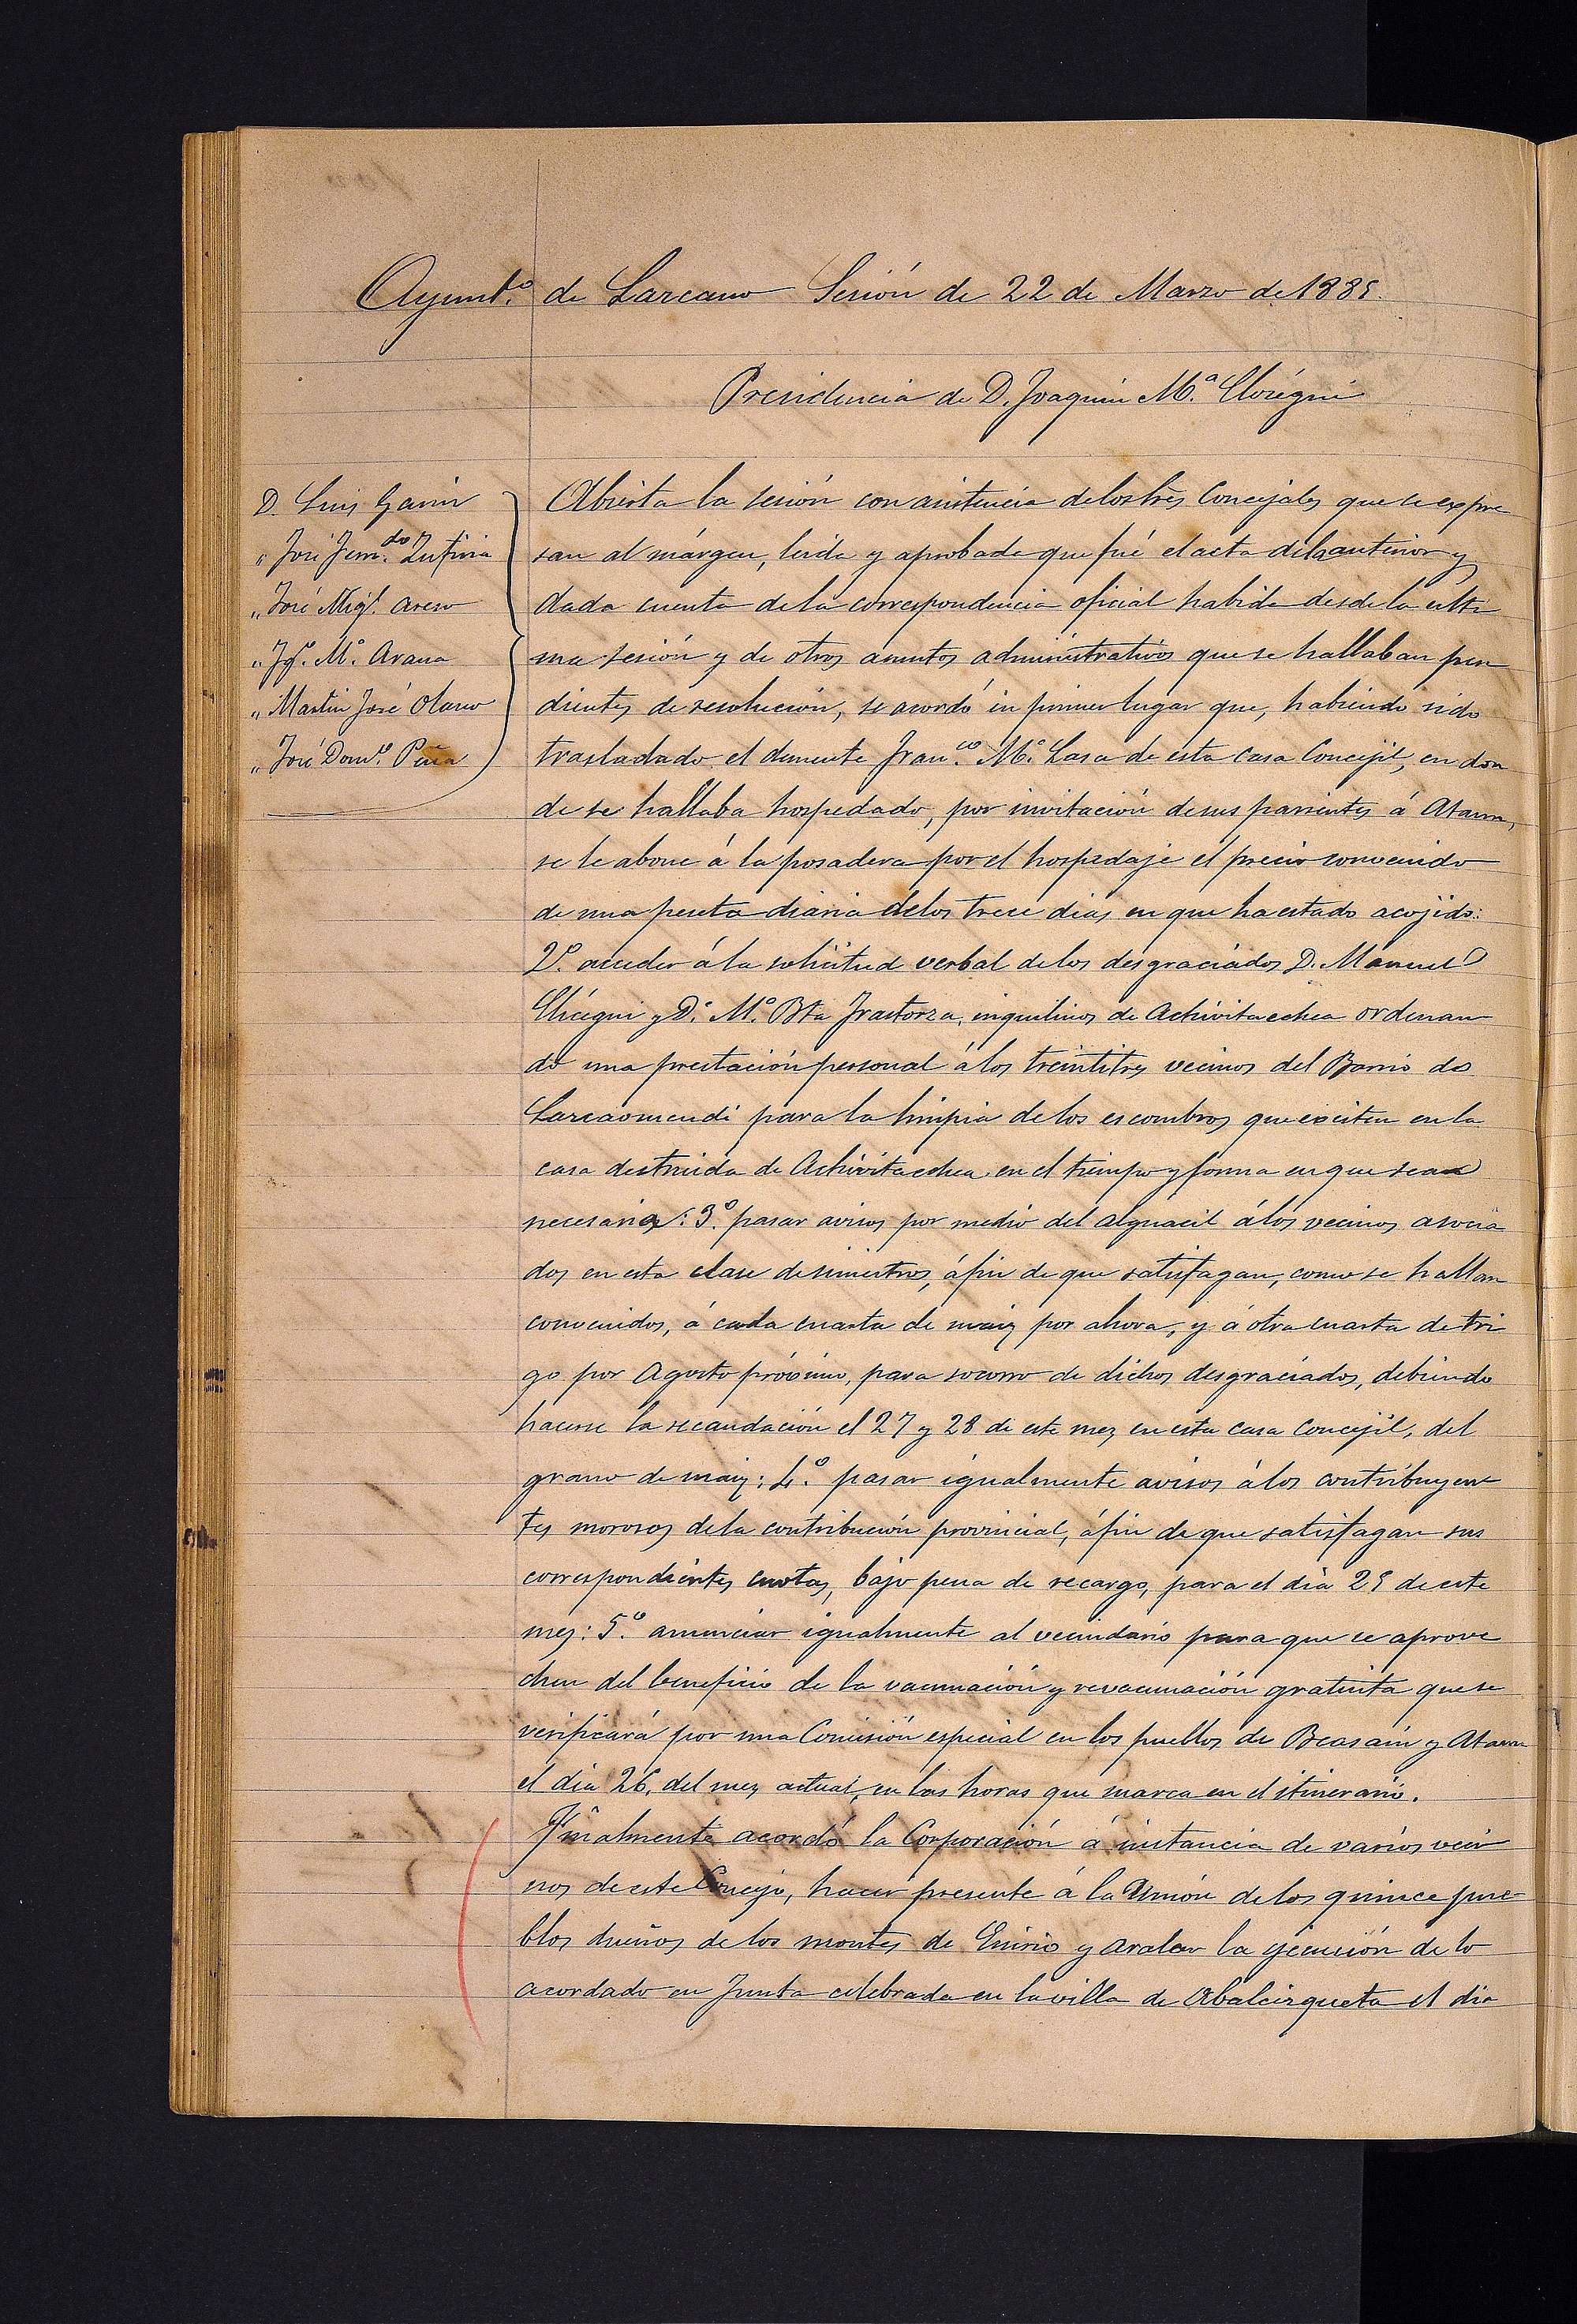 Ayunt.º de Lazcano Sesión de 22 de Marzo de 1885.
Presidencia de D. Joaquin M.ª Elorégui
D. Luis Garin
" José Fern.do Zufiria
" José Mig.l Areso
" Jq.º M.ª Arana
" Martin José Olano
" José Dom.º Peña
Abierta la sesión con asistencia de los Concejales que se expre
san al márgen, leida y aprobada que fué el acta de la anterior y
dada cuenta de la correspondencia oficial habida desde la últi
ma sesión y de otros asuntos administrativos que se hallaban pen
dientes de resolución, se acordó en primer lugar que, habiendo sido
trasladado el demente Fran.co M.ª Lasa de esta casa Concejil, en don
de se hallaba hospedado, por invitación de sus parientes á Ataun,
se le abone á la posadera por el hospedaje el precio convenido
de una peseta diaria de los trece dias en que ha estado acojido:
2.º acceder á la solicitud verbal de los desgraciados D. Manuel
y D.ª M.ª Bta Irastorza, inquilinos de Achivitaechea ordenan
do una prestación personal á los treintitres vecinos del Barrio de
Lazcaomendi para la limpia de los escombros que existen en la
casa destruida de Achivitaechea en el tiempo y forma en que sea
necesaria: 3.º pasar avisos por medio del alguacil á los vecinos asocia
dos en esta clase de siniestros, á fin de que satisfagan, como se hallan
convenidos, á cada cuarta de maiz por ahora, y á otra cuarta de tri
go por Agosto próximo, para socorro de dichos desgraciados, debiendo
hacerse la recaudación el 27 y 28 de este mes en esta casa Concejil, del
grano de maiz: 4.º pasar igualmente avisos á los contribuyen
tes morosos de la contribución provincial, á fin de que satisfagan sus
correspondientes cuotas, bajo pena de recargo, para el dia 25 de este
mes: 5.º anunciar igualmente al vecindario para que se aprove
chen del beneficio de la vacunación y revacunación gratuita que se
verificará por una Comisión especial en los pueblos de Beasain y Ataun
el dia 26, del mes actual, en las horas que marca en el itinerario.
Finalmente acordó la Corporación á instancia de varios veci
nos de este Concejo, hacer presente á la Unión de los quince pue-
blos dueños de los montes de Enirio y Aralar la ejecución de lo
acordado en Junta celebrada en la villa de Abalcisqueta el dia